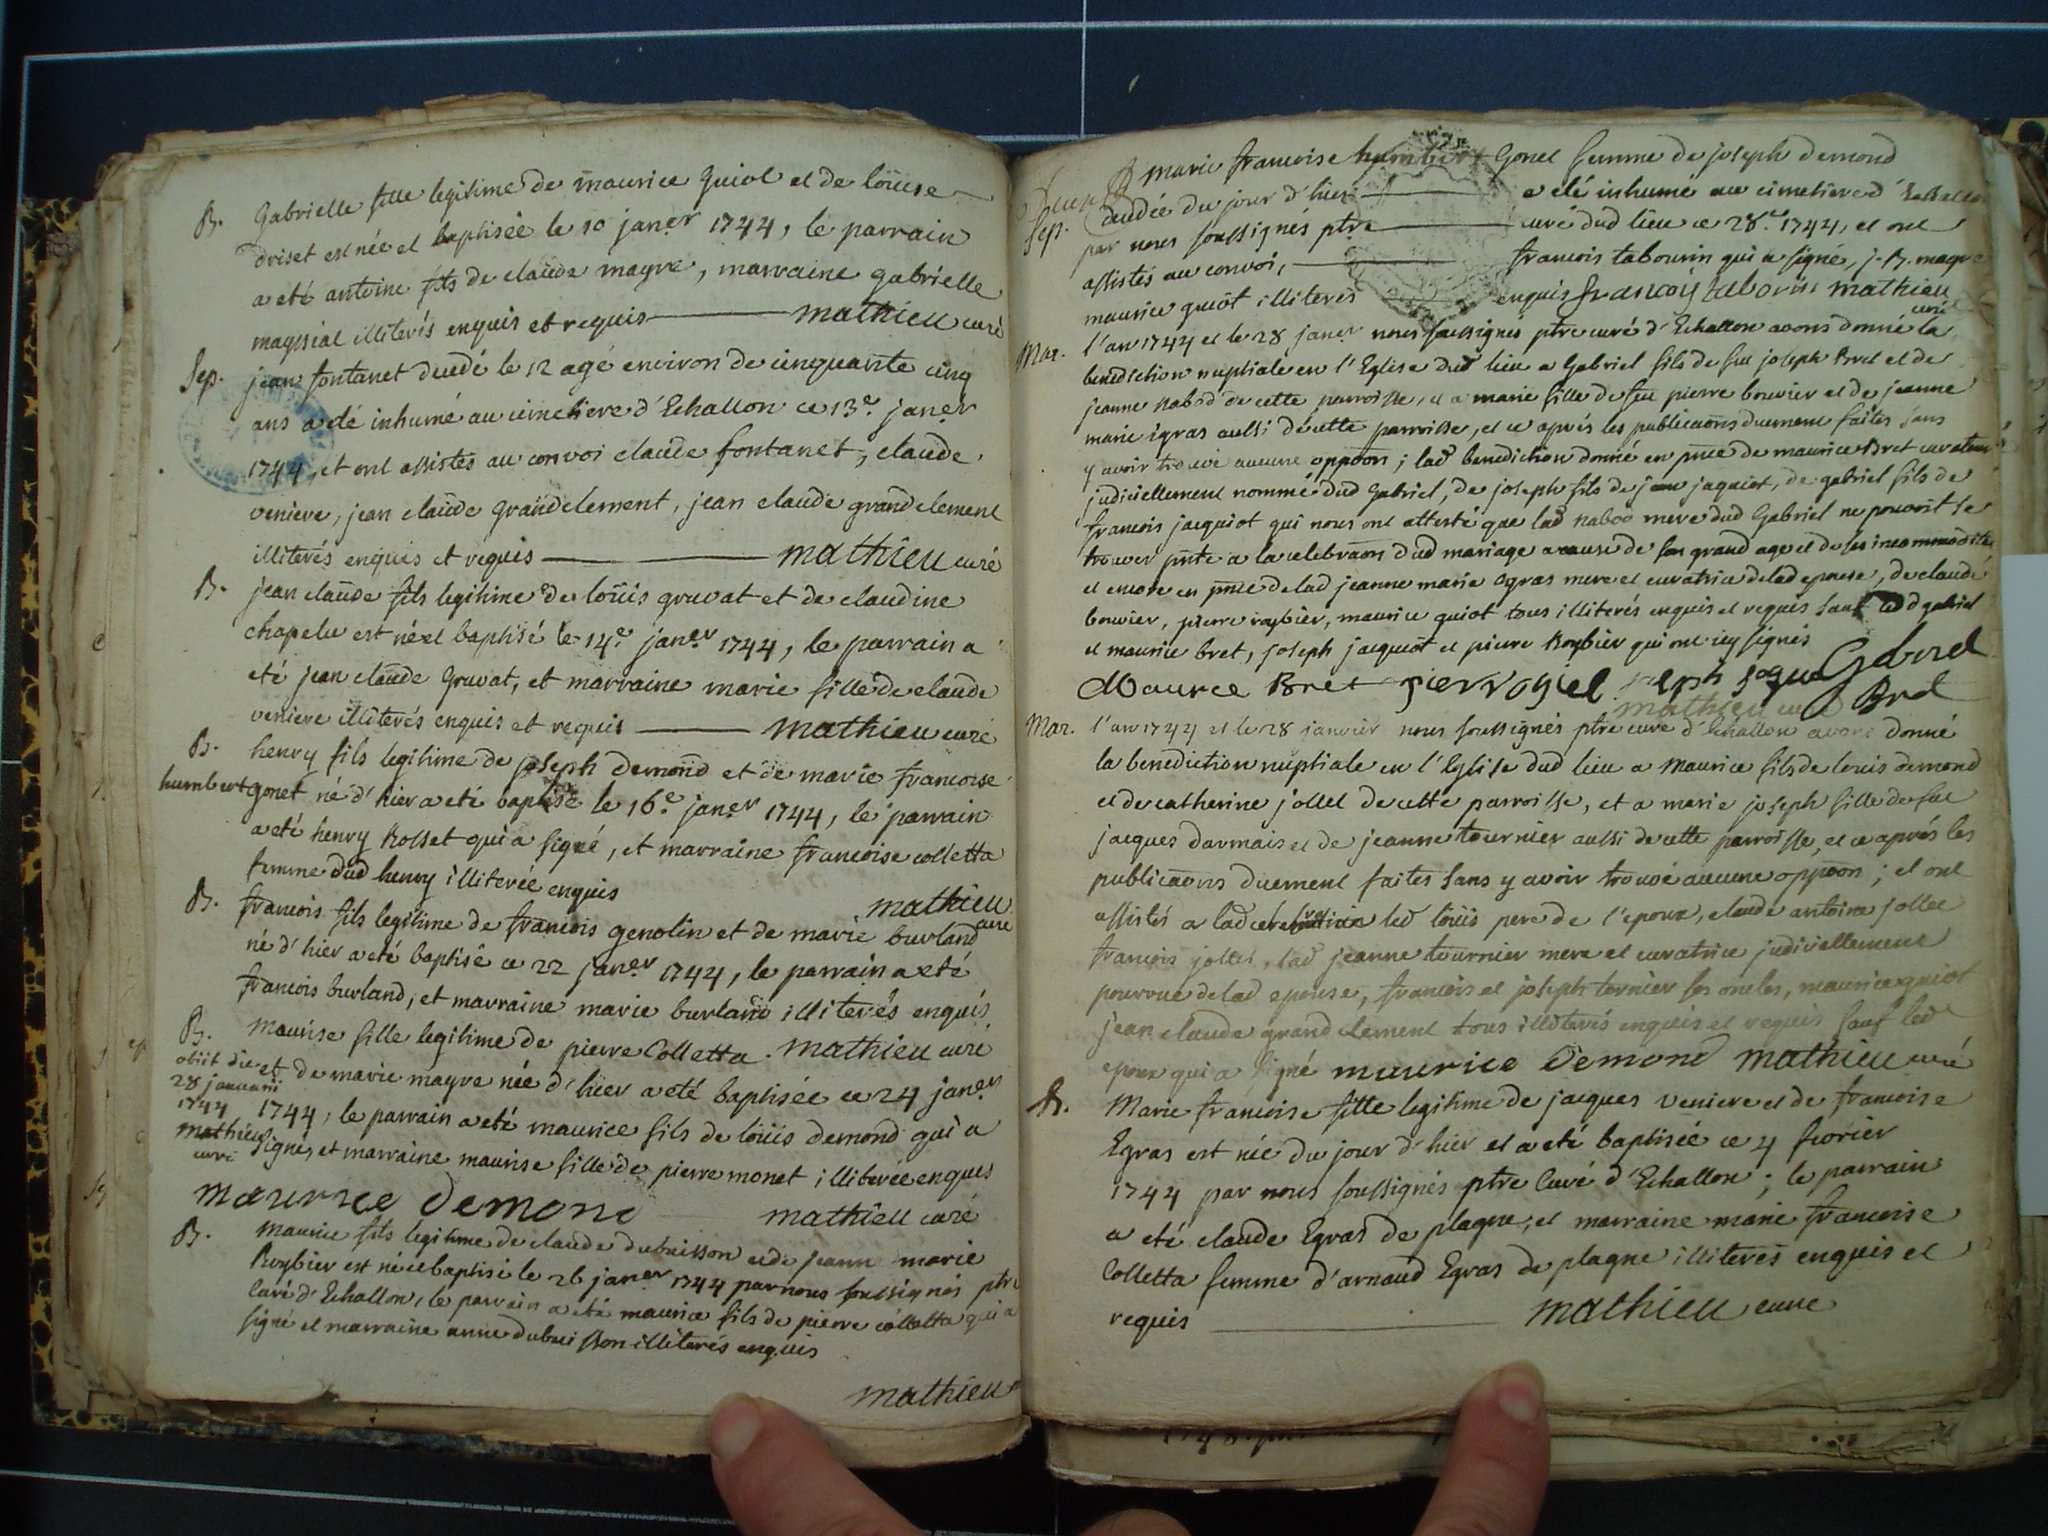 B. Gabrielle fille legitime de maurice Guiot et de loüise
driset est née et baptisée le 10 janer 1744, le parrain
a eté antoine fils de claude mayre, marraine gabrielle
illiterés enquis et requis mathieu curé
Sep. jean fontanet decedé le 12 agé environ de cinquante cinq
ans a eté inhumé au cimetiere d'Echallon ce 13e janer
1744, et ont assistés au convoi claude fontanet, claude
veniere, jean claude grandclement, jean claude grandclement
illiterés enquis et requis mathieu curé
B. jean claude fils legitime de loüis gruvat et de claudine
chapelu est né et baptisé le 14e janer 1744, le parrain a
eté jean claude Gruvat, et marraine marie fille de claude
veniere illiterés enquis et requis mathieu curé
B. henry fils legitime de joseph demond et de marie francoise
humbert gonet né d'hier a eté baptisé le 16e janer 1744, le parrain
a eté henry Rosset qui a signé, et marraine francoise colletta
femme dud henry illiterée enquis mathieu
curé
B. francois fils legitime de francois genolin et de marie burland
né d'hier a eté baptisé ce 22 janer 1744, le parrain a eté
francois burland, et marraine marie burland illiterés enquis
mathieu curé
B. Maurise fille legitime de pierre Colletta
et de marie mayre née d'hier a eté baptisée ce 24 janer
1744, le parrain a eté maurice fils de loüis demond qui a
signé, et marraine maurise fille de pierre monet illiterée enquis
obiit die
28 januarii
1744
mathieu
curé
maurice demond mathieu curé
B. Maurice fils legitime de claude dubuisson et de jeanne marie
Roybier est né et baptisé le 26 janer 1744 par nous soussignés ptre
curé d'Echallon, le parrain a eté maurice fils de pierre colletta qui a
signé et marraine anne dubuisson illiterés enquis
mathieu
marie francoise humbert Gonet femme de joseph demond
Sep. decedée du jour d'hier a eté inhumé au cimetiere d'Echallon
par nous soussignés ptre curé dud lieu ce 28e 1744, et ont
assistés au convoi, francois tabourin qui a signé, j. B. mayre
maurice quiot illiterés enquis francois tabourin mathieu
curé
Mar. l'an 1744 et le 28 janer nous soussignes ptre curé d'Echallon avons donné la
benediction nuptiale en l'Eglise dud lieu a Gabriel fils de feu joseph Bret et de
jeanne nabod de cette parroisse, et a marie fille de feu pierre bouvier et de jeanne
marie igras aussi de cette parroisse, et ce aprés les publicaons duement faites sans
y avoir trouvé aucune oppoon; lad benediction donné en pnce de maurice Bret curateur
judiciellement nommé dud Gabriel, de joseph fils de jean jaquiot, de gabriel fils de
francois jacquiot qui nous ont attesté que lad nabod mere dud Gabriel ne pouvoit se
trouver pnte a la celebraon dud mariage a cause de son grand age et de ses incommodités
et encore en pnce de lad jeanne marie Ogras mere et curatrice de lad epouse, de claude
bouvier, pierre roybier, maurice quiot tous illiterés enquis et requis sauf led gabriel
et maurice bret, joseph jacquiot et pierre Roybier qui ont icy signés
Maurce Bret Gabriel
mathieu curé Bret
Mar. l'an 1744 et le 28 janvier nous soussignés ptre curé d'Echallon avons donné
la benediction nuptiale en l'Eglise dud lieu a Maurice fils de louis demond
et de catherine jollet de cette parroisse, et a marie joseph fille de feu
jacques darmais et de jeanne tournier aussi de cette parroisse, et ce aprés les
publicaons duement faites sans y avoir trouvé aucune oppoon; et ont
assistés a lad led loüis pere de l'epoux, claude antoine jollet
francois jollet, lad jeanne tournier mere et curatrice judiciellement
pourvue de lad epouse, francois et joseph tornier ses oncles, maurice quiot
jean claude grand clement tous illiterés enquis et requis sauf led
epoux qui a signé maurice demond mathieu curé
B. Marie francoise fille legitime de jacques veniere et de francoise
Egras est née du jour d'hier et a eté baptisée ce 4 fevrier
1744 par nous soussignés ptre Curé d'Echallon; le parrain
a eté claude Egras de plagne, et marraine marie francoise
Colletta femme d'arnaud Egras de plagne illiterés enquis et
requis mathieu curé